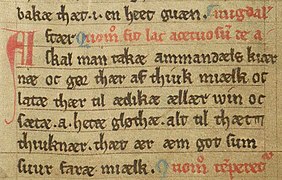 bakæ thæt. i. en heet gnæn.
stær Quom̄ fit lac acetosū ce a
Skal man takæ ammandæls kiær
næ oc gør thær af thiuk miælk. oc
latæ thær til ædikæ ællær win oc
sætæ. a. hetæ gløthæ. alt til thæt
thiuknær. thæt ær æm got sum
suur faræ miælk. Quom̄